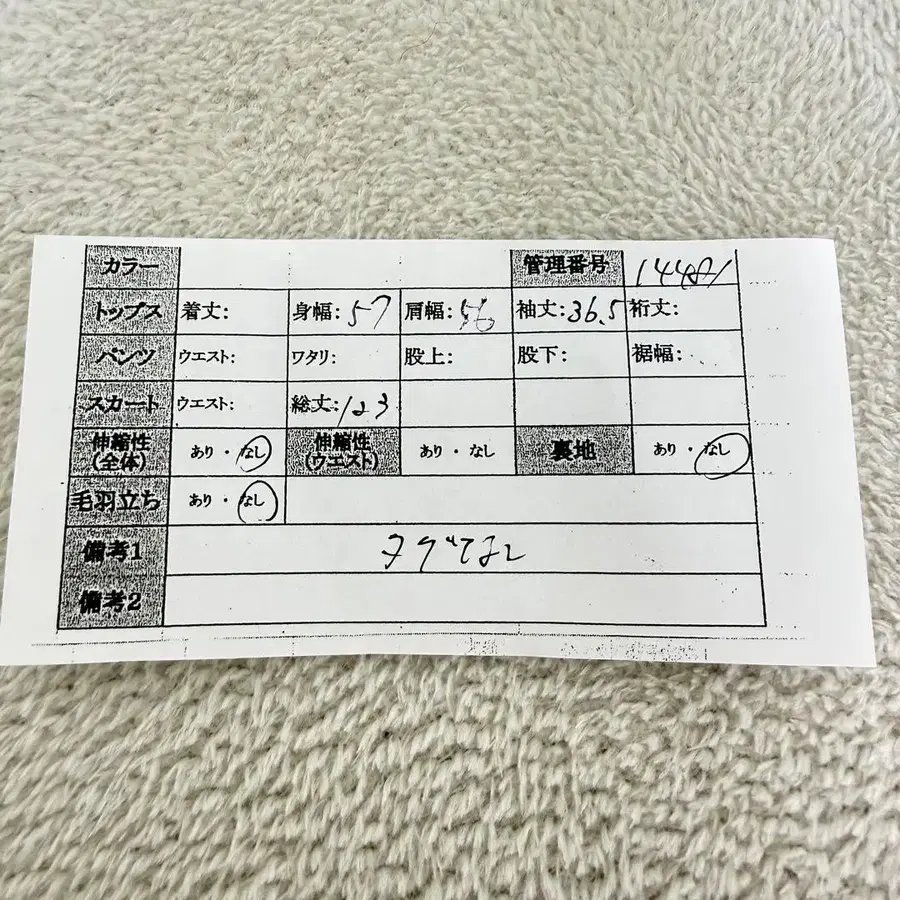 カラー 管理番号 14481
トップス 着丈: 身幅:57 肩幅:56 袖丈:36.5 裄丈:
パンツ ウエスト: ワタリ: 股上: 股下: 裾幅:
スカート ウエスト: 総丈:123
伸縮性(全体) あり・なし 伸縮性(ウエスト) あり・なし 裏地 あり・なし
毛羽立ち あり・なし
備考1 タグなし
備考2